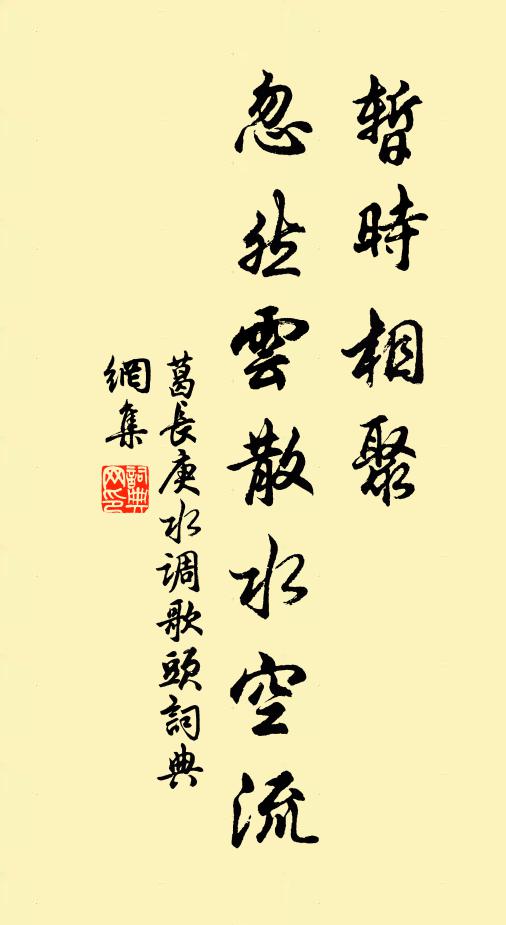 暫時相聚
忽然雲散水空流
葛長庚水调歌頭詞典
網集
詞典
网印